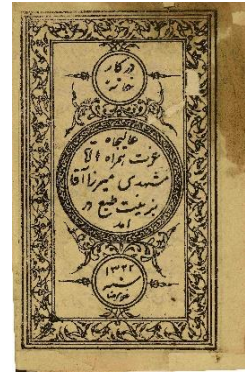 در کار
خانه
عالیجاه
عزت همراه آقا
مشهدی میرزا آقا
بزینت طبع در
آمد
۱۳۲۲
سنه